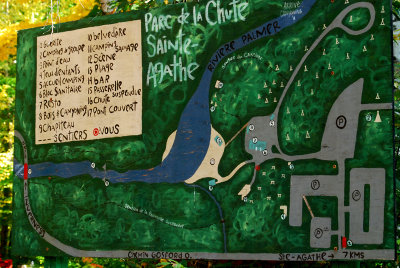 Parc de la Chute
Sainte
Agathe
1 Guérite
2 Camping groupe
3 Point d'eau
4 Jeux d'enfants
5 Accueil camping
6 Bloc Sanitaire
7 Resto
8 Bois de Camping
9 Chapiteau
10 belvedere
11 Camping Sauvage
12 Scène
13 Plage
14 bar
15 Passerelle
16 Chute suspendue
17 Pont Couvert
SENTIERS
VOUS
RIVIÈRE PALMER
P
P
P
P
P
CHEMIN GOSFORD O.
STE-AGATHE → 7 KMS